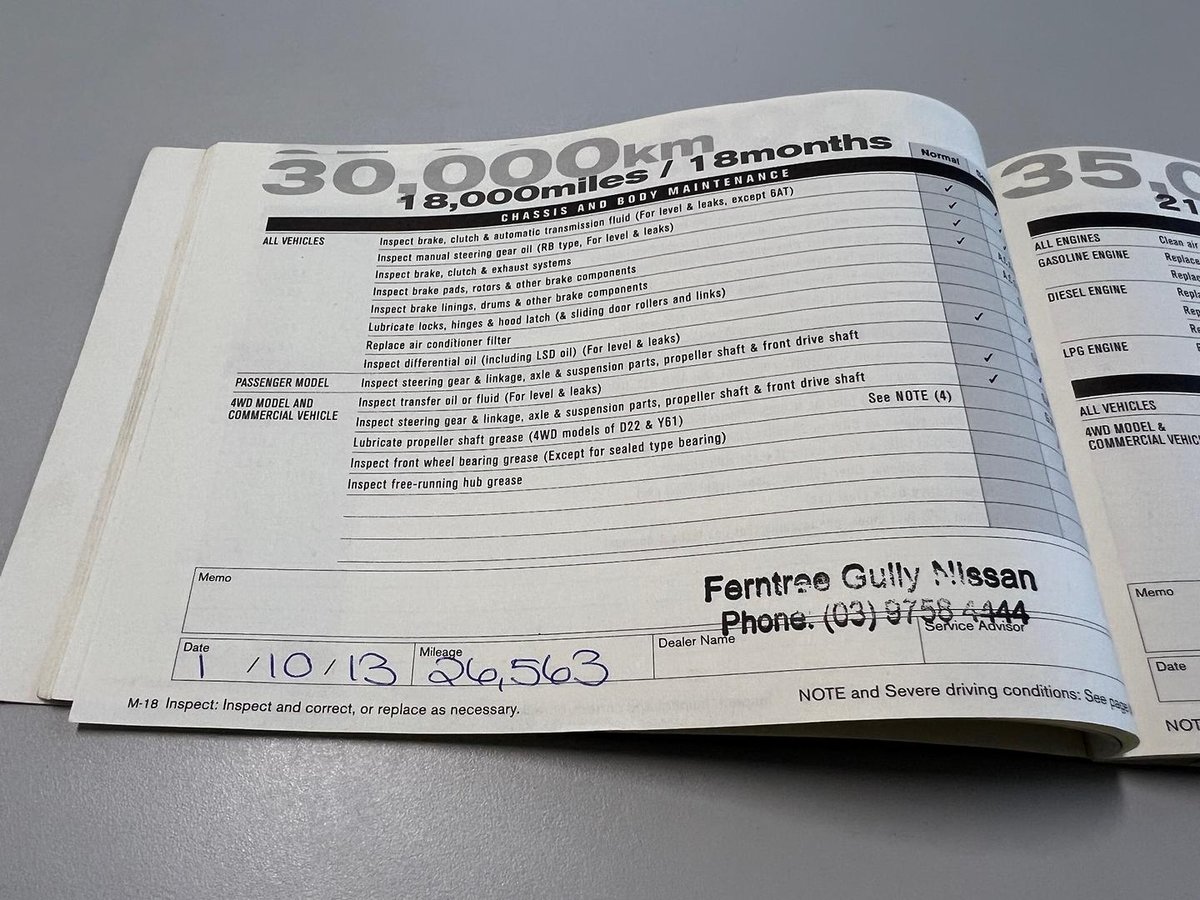 30,000km
18,000miles / 18months
Normal
CHASSIS AND BODY MAINTENANCE
ALL VEHICLES
Inspect brake, clutch & automatic transmission fluid (For level & leaks, except 6AT) ✓
Inspect manual steering gear oil (RB type, For level & leaks) ✓
Inspect brake, clutch & exhaust systems ✓
Inspect brake pads, rotors & other brake components ✓
Inspect brake linings, drums & other brake components
Lubricate locks, hinges & hood latch (& sliding door rollers and links)
Replace air conditioner filter
Inspect differential oil (including LSD oil) (For level & leaks) ✓
PASSENGER MODEL
Inspect steering gear & linkage, axle & suspension parts, propeller shaft & front drive shaft
4WD MODEL AND
COMMERCIAL VEHICLE
Inspect transfer oil or fluid (For level & leaks) ✓
Inspect steering gear & linkage, axle & suspension parts, propeller shaft & front drive shaft ✓
Lubricate propeller shaft grease (4WD models of D22 & Y61)
See NOTE (4)
Inspect front wheel bearing grease (Except for sealed type bearing)
Inspect free-running hub grease
Memo
Ferntree Gully Nissan
Phone: (03) 9758 4444
Date
1 / 10 / 13
Mileage
26,563
Dealer Name
Service Advisor
M-18 Inspect: Inspect and correct, or replace as necessary.
NOTE and Severe driving conditions: See page
35,0
21
ALL ENGINES
Clean air
GASOLINE ENGINE
Replace
Replace
DIESEL ENGINE
LPG ENGINE
ALL VEHICLES
4WD MODEL &
COMMERCIAL VEHIC
Memo
Date
NOT